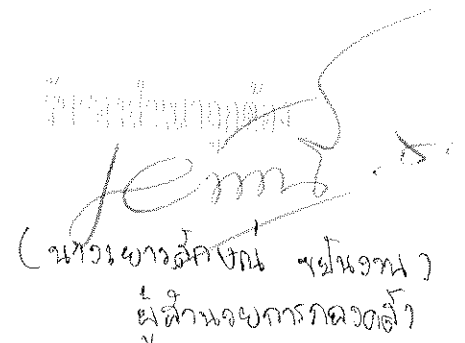 รับรองสำเนาถูกต้อง
(นางเยาวลักษณ์ ขยันงาน)
ผู้อำนวยการกองคลัง